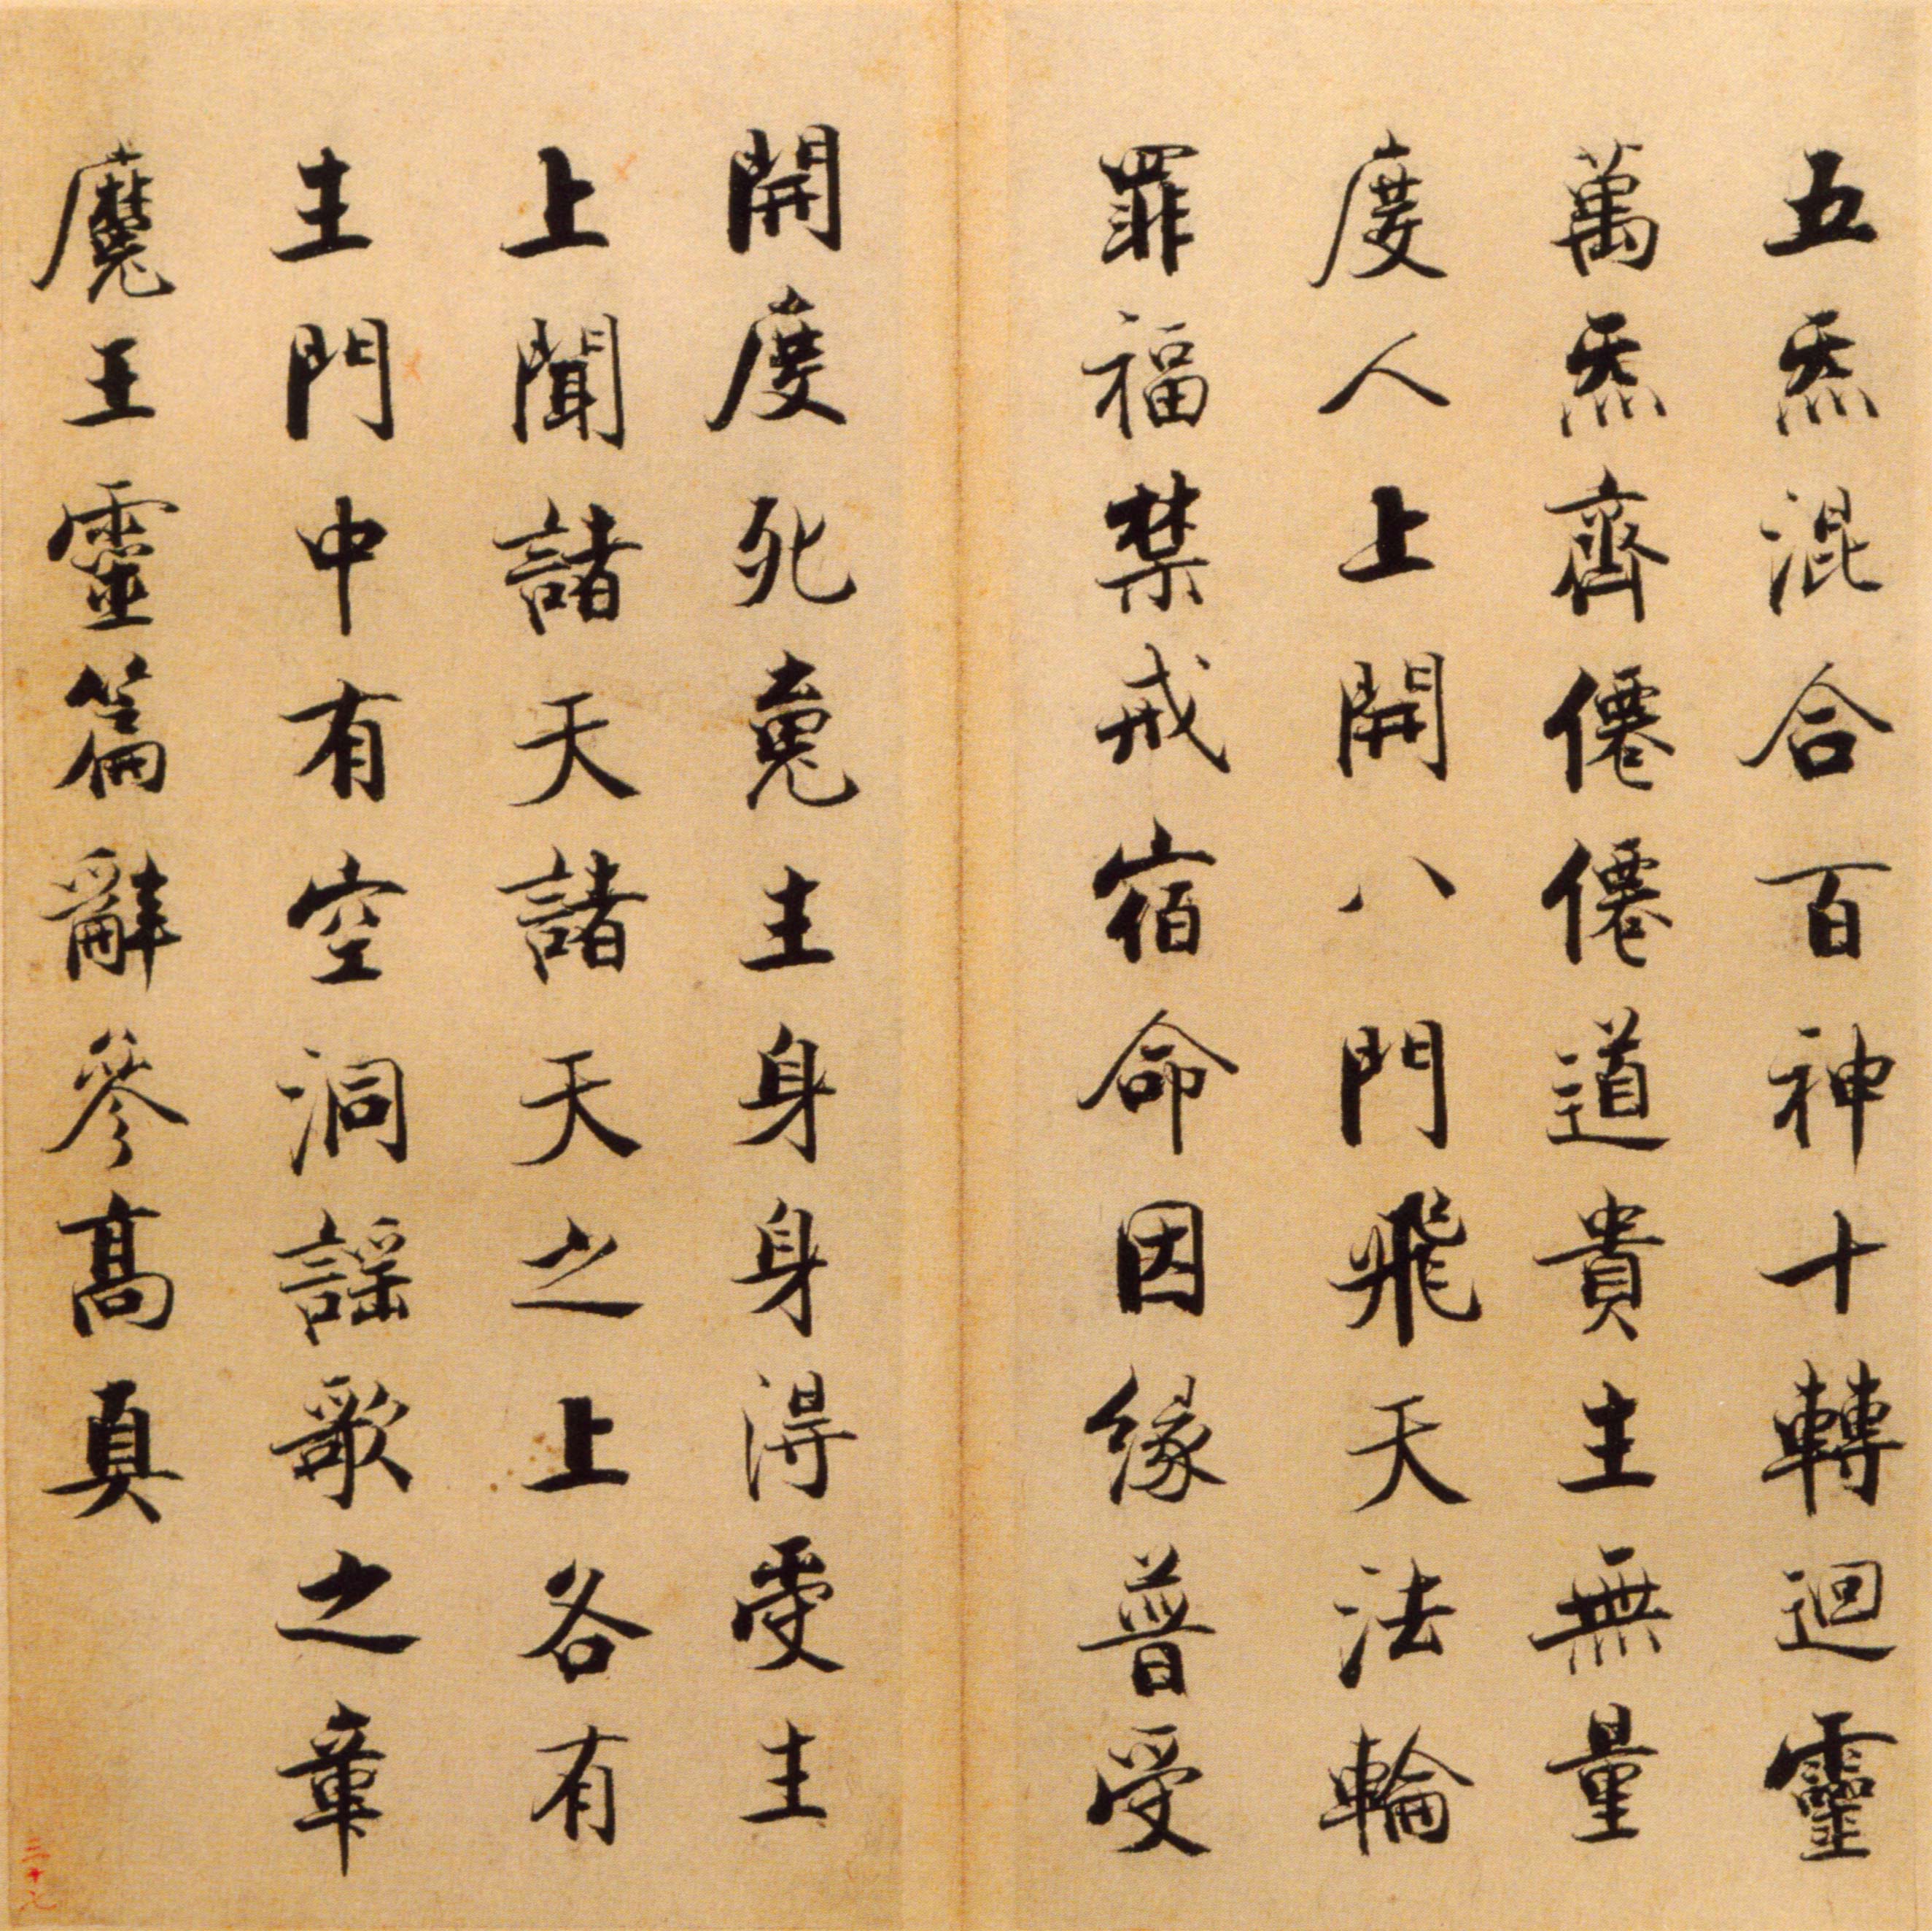 五炁混合百神十轉迴靈
萬炁齊僊僊道貴生無量
度人上開八門飛天法輪
罪福禁戒宿命因緣普受
開度死䰟生身身得受生
上聞諸天諸天之上各有
生門中有空洞謠歌之章
魔王靈篇辭參高真
三十七